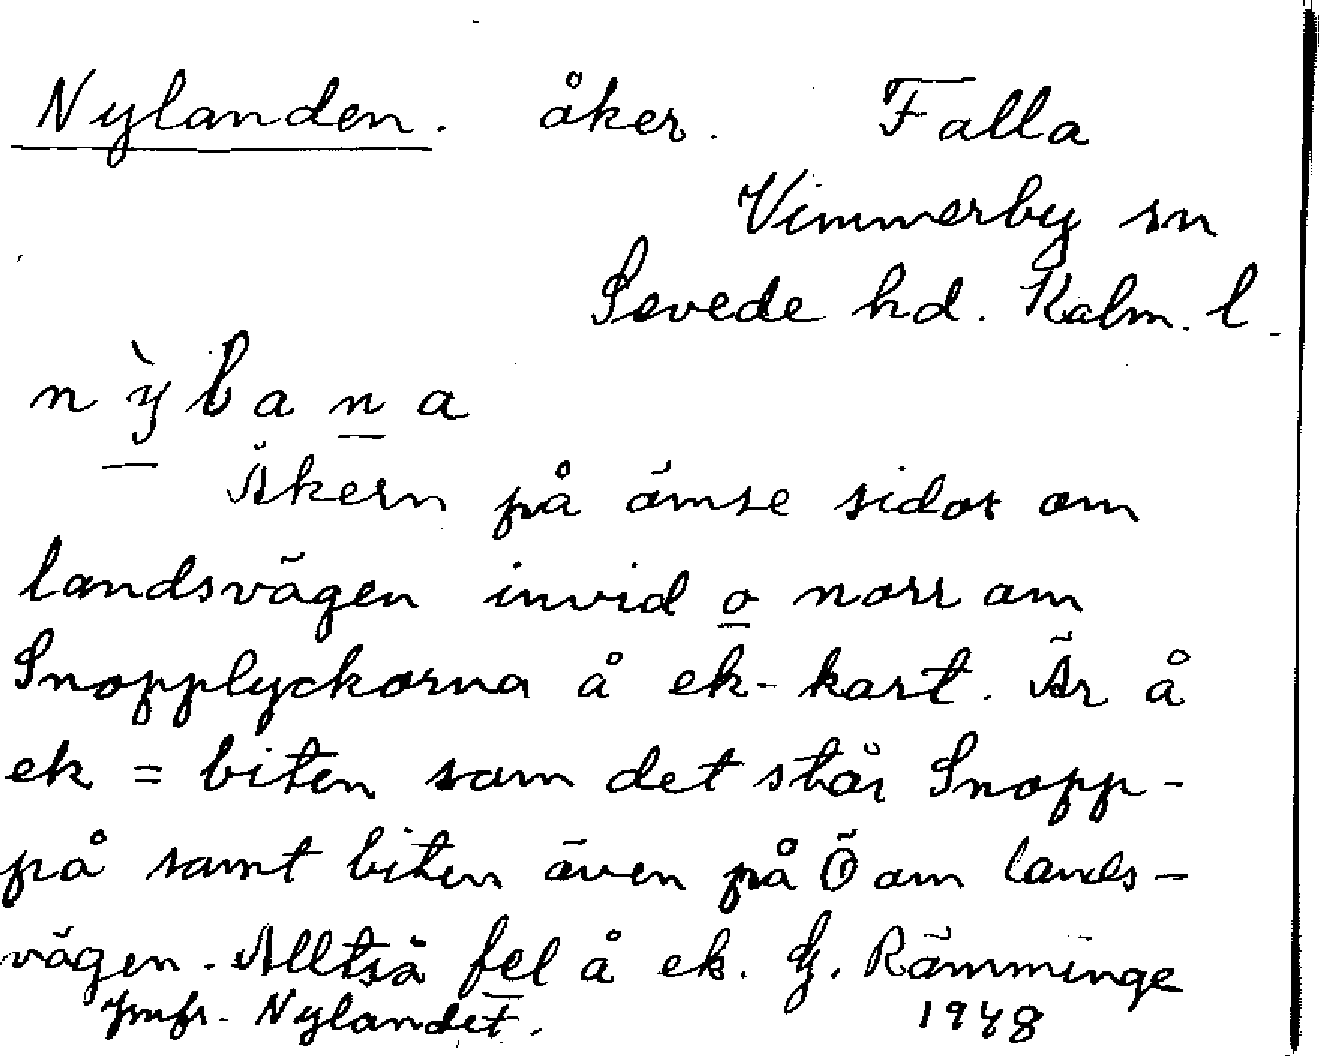 Nylanden. åker. Falla
Vimmerby sn
Sevede hd. Kalm. l.
nỳlana
Åkern på ömse sidor om
landsvägen invid o norr om
Snopplyckorna å ek-kart. Är å
ek = biten som det står Snopp-
på samt biten även på Ö om lands-
vägen. Alltså fel å ek. G. Rämminge
Jmfr. Nylandet. 1948